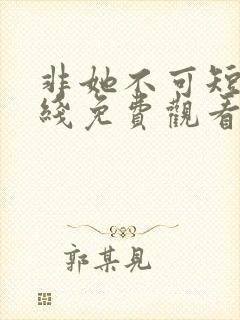 非她不可短
綫免費觀看
郭某見